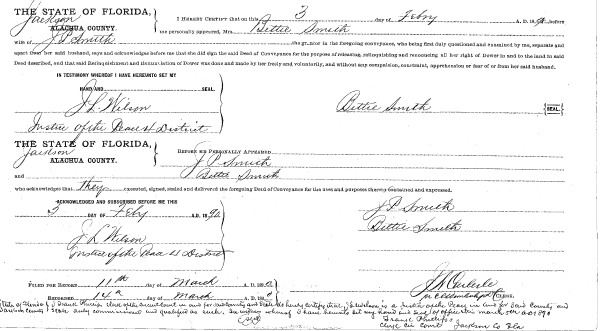 THE STATE OF FLORIDA,
Jackson
ALACHUA COUNTY.
I HEREBY CERTIFY that on this 3 day of Feby A. D. 18 90 before
me personally appeared, Mrs. Bettie Smith
wife of J. P. Smith the grantor in the foregoing conveyance, who being first duly questioned and examined by me, separate and
apart from her said husband, says and acknowledges before me that she did sign the said Deed of Conveyance for the purpose of releasing, relinquishing and renouncing all her right of Dower in and to the land in said
Deed described, and that said Relinquishment and Renunciation of Dower was done and made by her freely and voluntarily, and without any compulsion, constraint, apprehension or fear of or from her said husband.
IN TESTIMONY WHEREOF I HAVE HEREUNTO SET MY
HAND AND SEAL.
J. L. Wilson
Justice of the Peace 4 District
Bettie Smith {SEAL.}
THE STATE OF FLORIDA,
Jackson
ALACHUA COUNTY.
BEFORE ME PERSONALLY APPEARED
J P Smith
and Bettie Smith
who acknowledges that they executed, signed, sealed and delivered the foregoing Deed of Conveyance for the uses and purposes therein contained and expressed.
ACKNOWLEDGED AND SUBSCRIBED BEFORE ME THIS
3 DAY OF Feby A. D. 18 90
J L Wilson
Justice of the Peace 4 District
J P Smith
Bettie Smith
FILED FOR RECORD 11th day of March A. D. 18
RECORDED 14th day of March A. D. 18
J A Carlisle
CLERK.
State of Florida I Frank Philips clerk of the court in and for said county and State do hereby certify that J L Wilson is a Justice of the Peace in and for said County and
Jackson County State duly commissioned and qualified as such. In witness whereof I have hereunto set my hand and seal of office this March 7th A D 1890
Frank Philips
Clerk cir court Jackson Co Fla